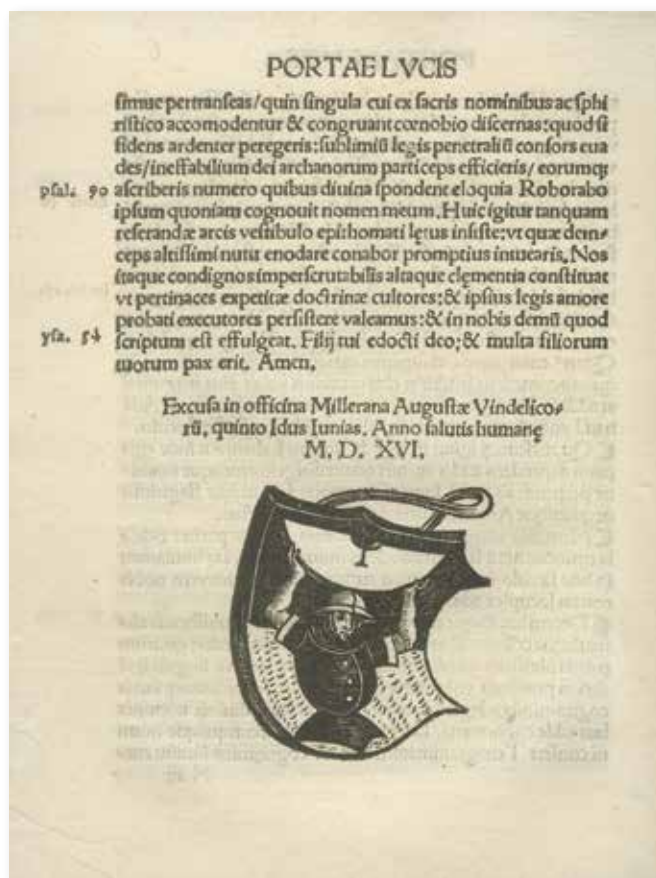 PORTAE LVCIS
simue pertranseas/quin singula cui ex sacris nominibus ac sphi
ristico accomodentur & congruant cœnobio discernas:quod si
fidens ardenter peregeris:sublimiũ legis penetraliũ consors eua
des/ineffabilium dei archanorum particeps efficieris/eorumqȝ
psal. 90 ascriberis numero quibus diuina spondent eloquia Roborabo
ipsum quoniam cognouit nomen meum. Huic igitur tanquam
referandæ arcis vestibulo epithomati lętus insiste:vt quæ dein⸗
ceps altissimi nutu enodare conabor promptius intuearis. Nos
itaque condignos imperscrutabilis altaque clęmentia constituat
vt pertinaces expetitæ doctrinæ cultores:& ipsius legis amore
probati executores persistere valeamus:& in nobis demũ quod
ysa. 54 scriptum est effulgeat. Filij tui edocti deo;& multa filiorum
tuorum pax erit. Amen.
Excusa in officina Millerana Augustæ Vindelico⸗
rũ, quinto Idus Iunias. Anno salutis humanę
M. D. XVI.